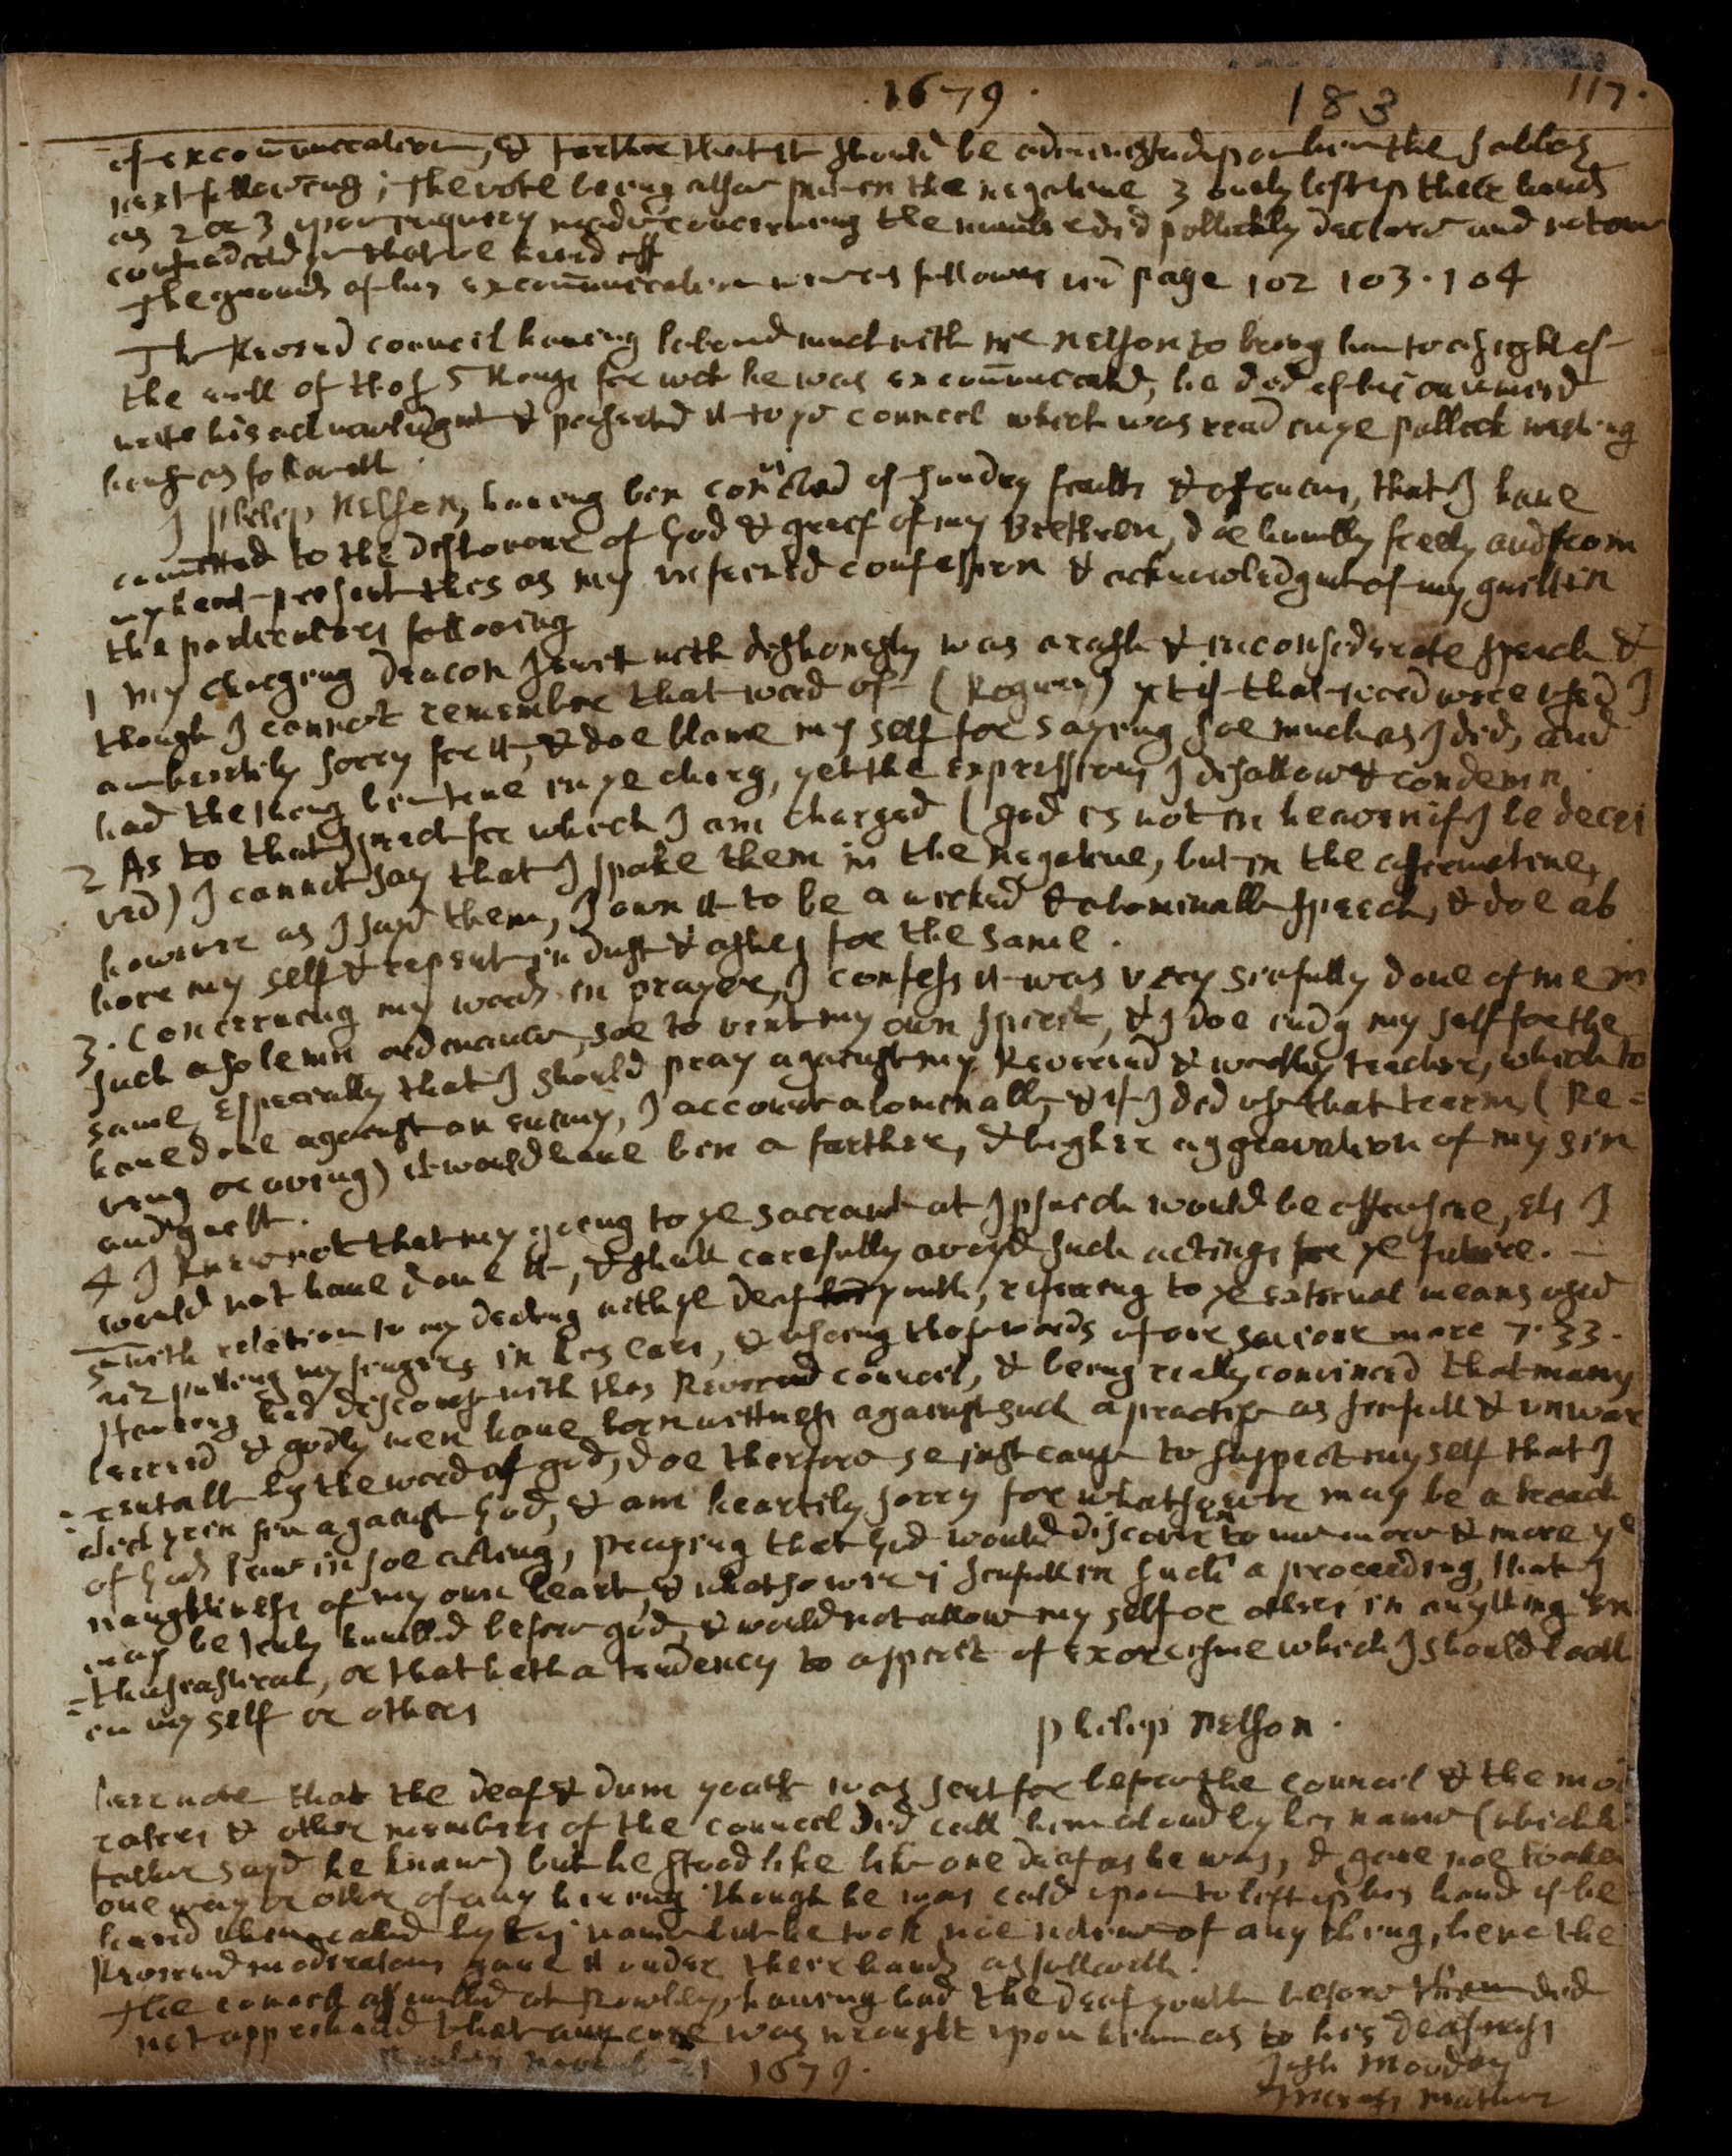 1679. 183 117.
of excommunication, & farther that it should be administred upon him the sabbath
next following; the vote being also put in the negative 3 onely lift up there hands
as 2 or 3 upon inquiry made concerning the number did publickly declare and not one
contradicted
The grounds of his excommunication were as followes page 102 103. 104
The Reverd councill having labourd much with mr Nelson to bring him to a sight of
the evill of thos 5 things for wch he was excommunicated, he did of his own accord
write his acknowledgmt & presented it to ye councel which was read in ye publick meeting
being as followeth
I Philip Nelson, having ben convicted of sundry faults & ofences, that I have
committed to the dishonour of God & grief of my Brethren, doe humbly freely and from
my heart present this as my unfeigned confession & acknowledgmt of my guilt in
the particulars following
1 My charging Deacon Jewet with dishonesty was a rash & inconsiderate speech &
though I cannot remember that word of (Roguery) yet if that word were used I
am heartily sorry for it, & doe blame my self for saying soe much as I did, and
had the thing bin true in ye charg, yet the expressions I disallow & condemn.
2 As to that speech for which I am charged (god is not in heaven if I be decei
ved) I cannot say that I spake them in the negative, but in the affirmative,
however as I sayd them, I own it to be a wicked & abominable speech, & doe ab
hore my self & repent in dust & ashes for the same.
3. Concerning my words in prayer, I confess it was very sinfully done of me in
such a solemn ordinance, soe to vent my own spirit, & I doe iudg my self for the
same, Especially that I should pray against my Reverend & worthy teacher, which to
have done against an enemy, I account abominable, & if I did use that tearm, (Re=
ving or aving) it would have ben a farther, & higher aggravation of my sin
and guilt.
4 I knew not that my going to ye sacramt at Ipswich would be offensive, els I
would not have done it, & shall carefully avoyd such actings for ye future.
5 with relation to my dealing with ye deaf youth, refering to ye external means used
viz putting my fingers in his ears, & useing thos words of our saviour marc 7. 33.
Having had discourse with this Reverend councel, & being really convinced that many
learned & godly men have born wittness against such a practise as sinfull & unwar
=rantable by the word of god, doe therfore se just cause to suspect my self that I
did therein sin against God, & am heartily sorry for whatsoever may be a breach
of Gods law in soe acting, praying that God would discover to me more & more ye
naughtiness of my own heart, & whatsoever is sinfull in such a proceeding, that I
may be truly humbled before god, & would not allow my self or others in anything En
=thusiasticall, or that hath a tendency to a spirit of exorcisme which I should loath
in my self or others
Philip Nelson.
here note that the deaf & dum youth was sent for before the Council & the mo
rators & other members of the councel did call him aloud by his name (which his
father sayd he knew) but he stood like one deaf as he was, & gave noe token
one way or other of any hearing though he was cald upon to lift up his hand if he
heard when called by his name but he took noe notice of any thing, hence the
Reverend moderatours gave it under there hands as followeth.
The council assembled at Rowley, having had the deaf youth before them did
not apprehend that any cure was wrought upon him as to his deafness
Rowley 1679.
Josh Moodey
Increas Mather